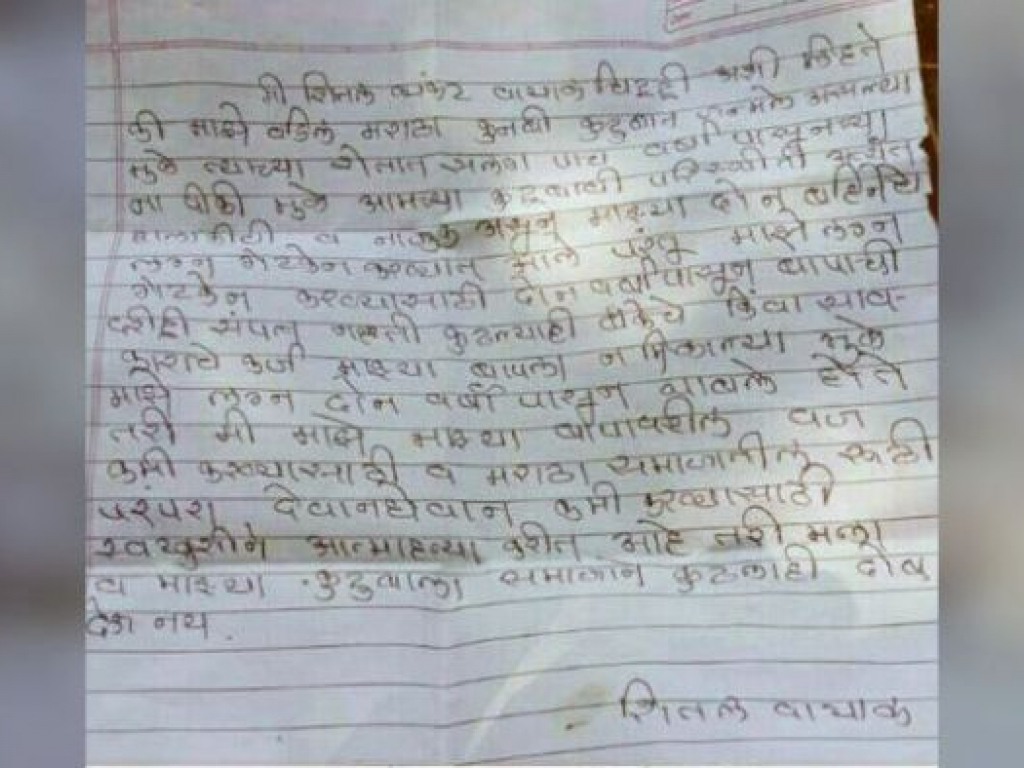 मी शितल व्यंकट वायाळ चिठ्ठी अशी लिहते
की माझे वडिल मराठा कुनबी कुटुबात जन्मले असल्या
मुळे त्याच्या शेतात सलग पाच वर्षा पासूनच्या
ना पीकी मुळे आमच्या कुटूबाची परिस्थीती अत्यंत
हालाकीची व नाजुक असून माझ्या दोन बहिनीचे
लग्न गेटकेन करण्यात आले परंतू माझे लग्न
गेटकेन करण्यासाठी दोन वर्षापासून बापाची
संपत नव्हती कुठल्याही बँकेचे किंवा साव-
काराचे कर्ज माझ्या बापाला न मिळाल्या मुळे
माझे लग्न दोन वर्षापासून थांबले होते
तरी मी माझे माझ्या बापावरील वज
कमी करण्यासाठी व मराठा समाजातील रूढी
परंपरा देवानघेवान कमी करण्यासाठी
स्वखुशीने आत्माहत्या करीत आहे तरी मला
व माझ्या कुटुबाला समाजान कुठलाही दोष
देऊ नय.
शितल वायाळ